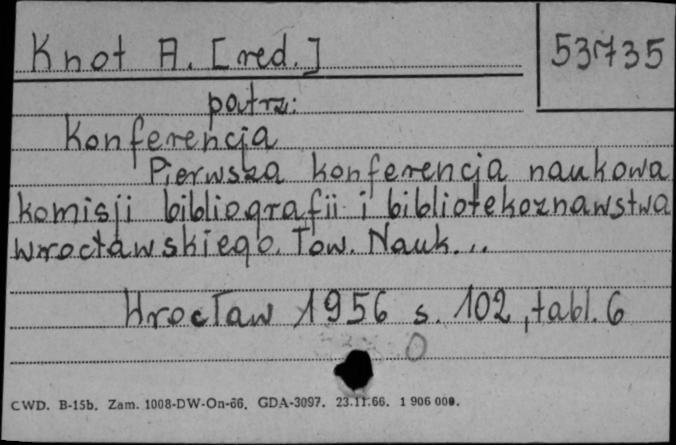 Knot A. [red.]
53735
patrz:
Konferencja
Pierwsza konferencja naukowa
komisji bibliografii i bibliotekoznawstwa
Wrocławskiego. Tow. Nauk...
Wrocław 1956 s. 102, tabl. 6
0
CWD. B-15b. Zam. 1008-DW-On-66. GDA-3097. 23.11.66. 1 906 000.